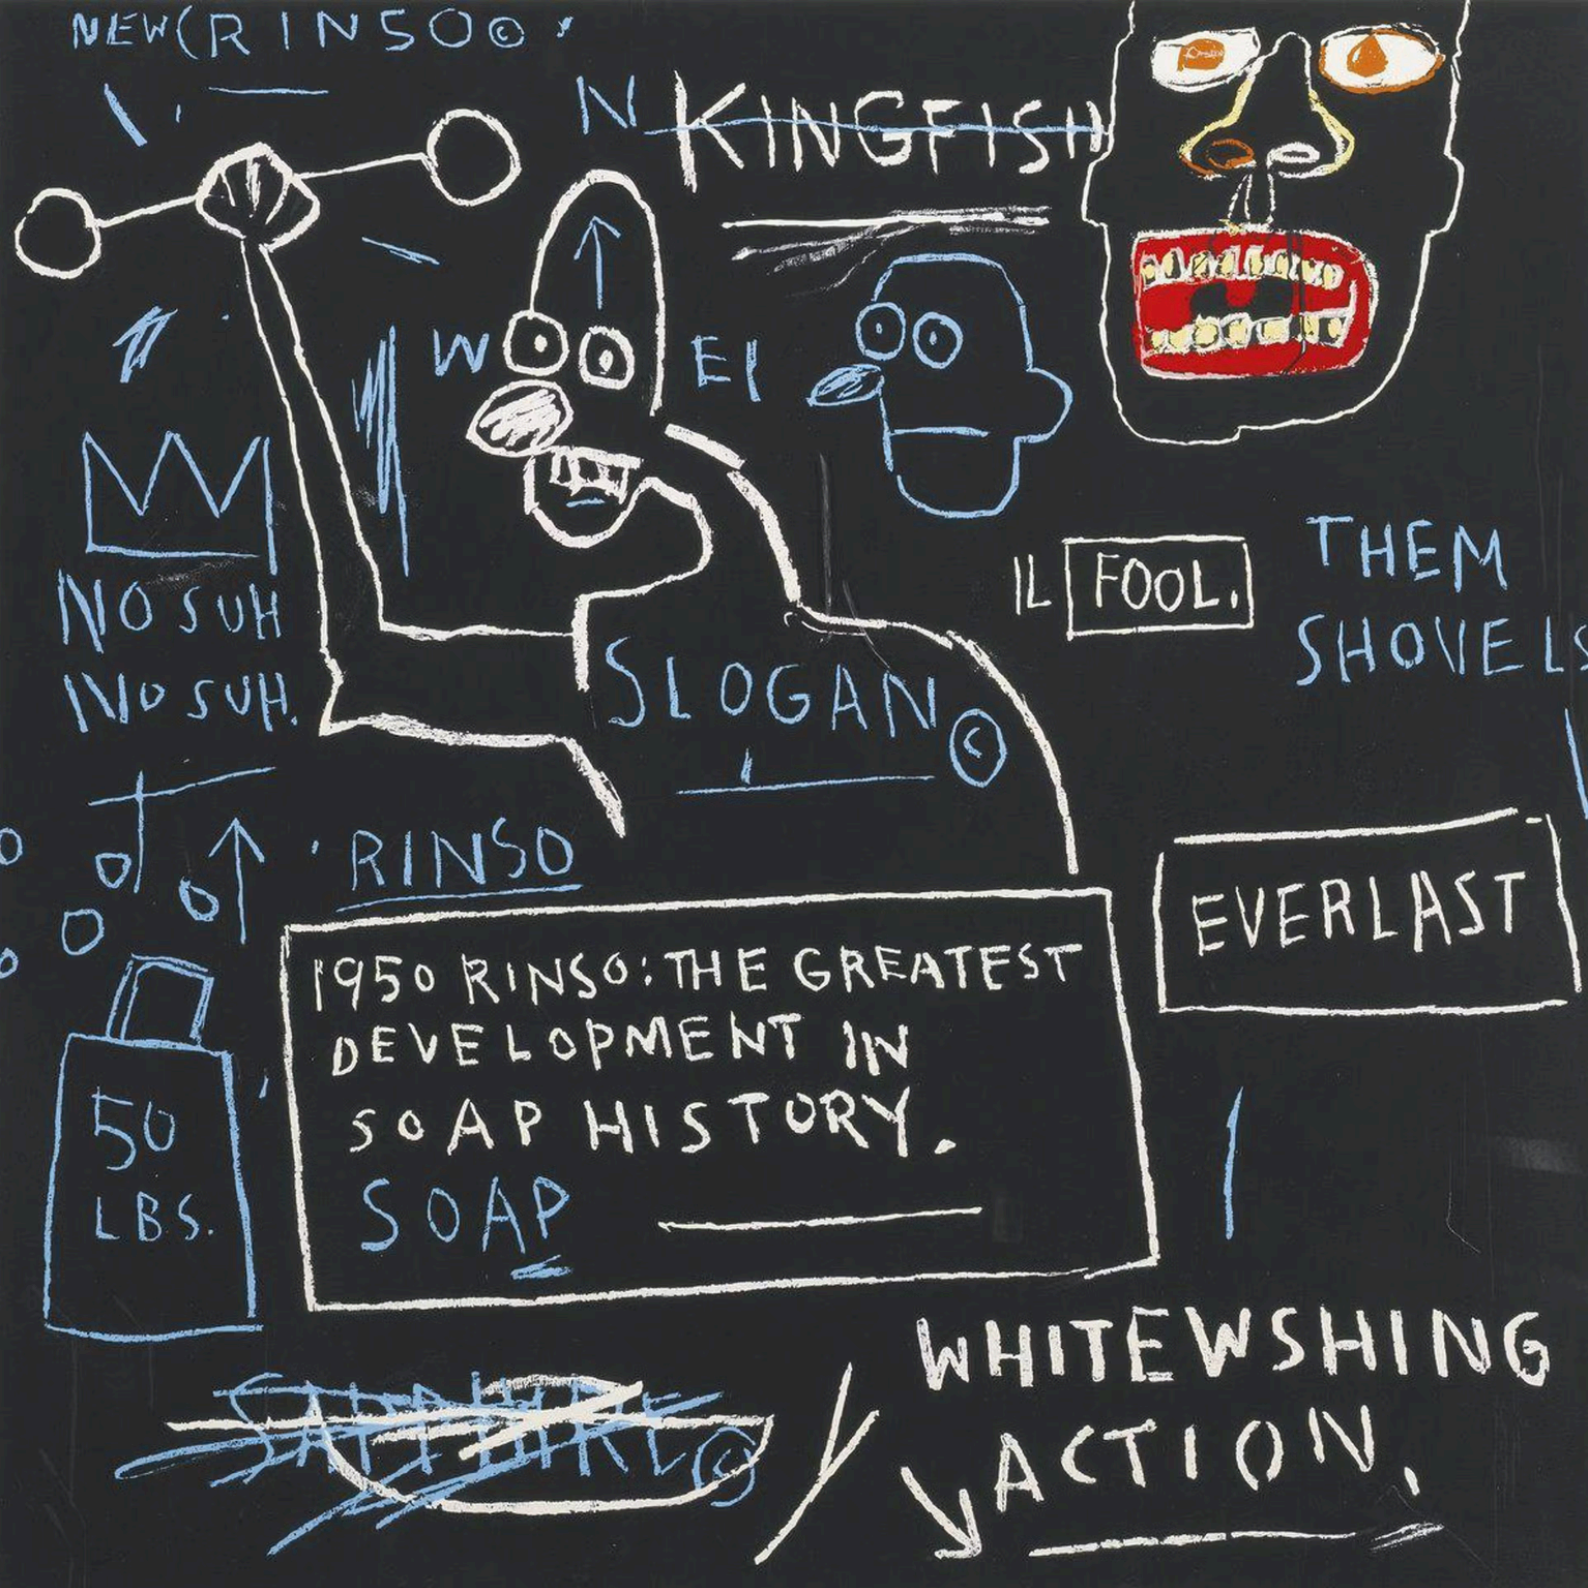 NEW(RINSO©
N KINGFISH
W
EI
IL FOOL.
THEM
SHOVELS
NO SUH
NO SUH.
SLOGAN©
RINSO
EVERLAST
1950 RINSO: THE GREATEST
DEVELOPMENT IN
SOAP HISTORY.
SOAP
50
LBS.
WHITEWSHING
ACTION.